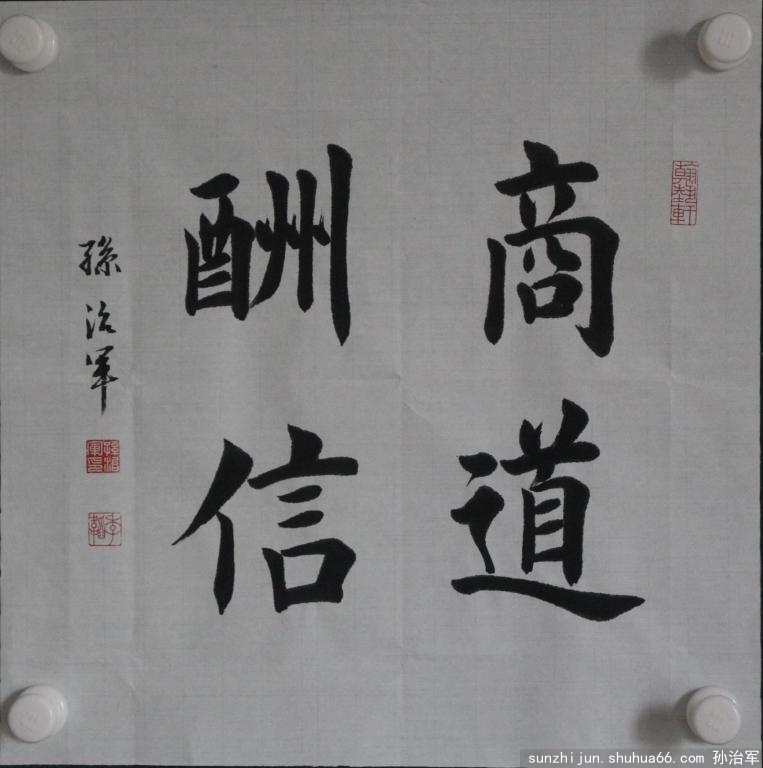 商道
酬信
孫治軍
孫治軍印
sunzhijun.shuhua66.com 孙治军